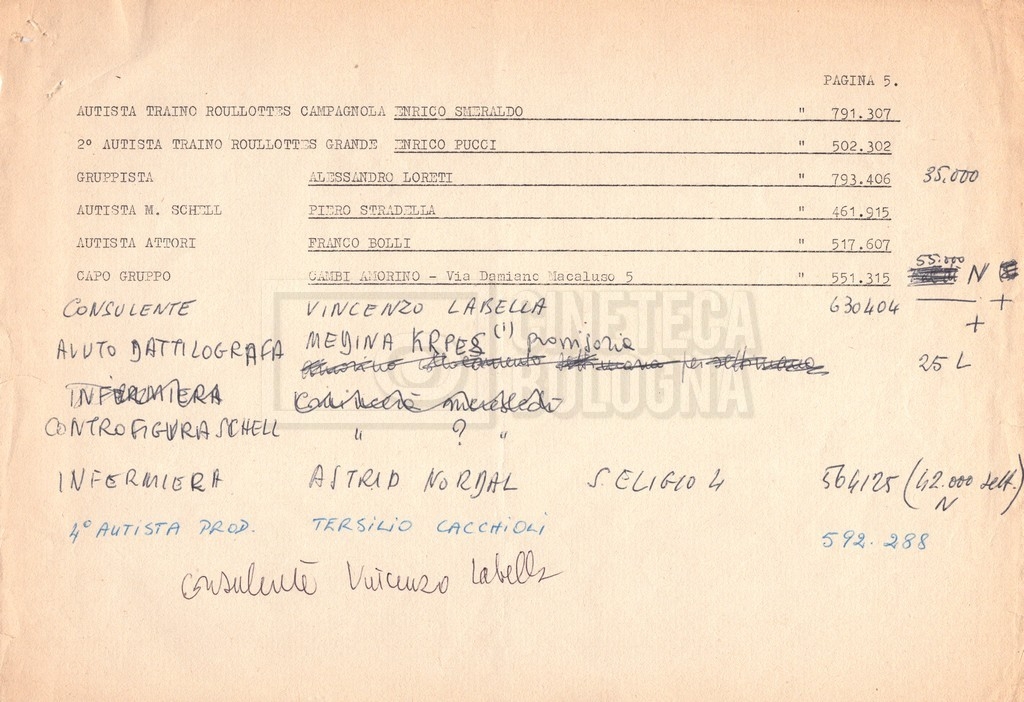 PAGINA 5.
AUTISTA TRAINO ROULLOTTES CAMPAGNOLA ENRICO SMERALDO " 791.307
2º AUTISTA TRAINO ROULLOTTES GRANDE ENRICO PUCCI " 502.302
GRUPPISTA ALESSANDRO LORETI " 793.406 35.000
AUTISTA M. SCHELL PIERO STRADELLA " 461.915
AUTISTA ATTORI FRANCO BOLLI " 517.607
55.000
CAPO GRUPPO CAMBI AMORINO - Via Damiano Macaluso 5 " 551.315 N
CONSULENTE VINCENZO LABELLA 630404 +
+
AIUTO DATTILOGRAFA MEDINA KRPES (1) provvisoria
25 L
INFERMIERA
CONTROFIGURA SCHELL " ? "
INFERMIERA ASTRID NORDAL S. ELIGIO 4 564125 (42.000 sett.)
N
4º AUTISTA PROD. TERSILIO CACCHIOLI 592.288
Consulente Vincenzo Labella
CINETECA
BOLOGNA